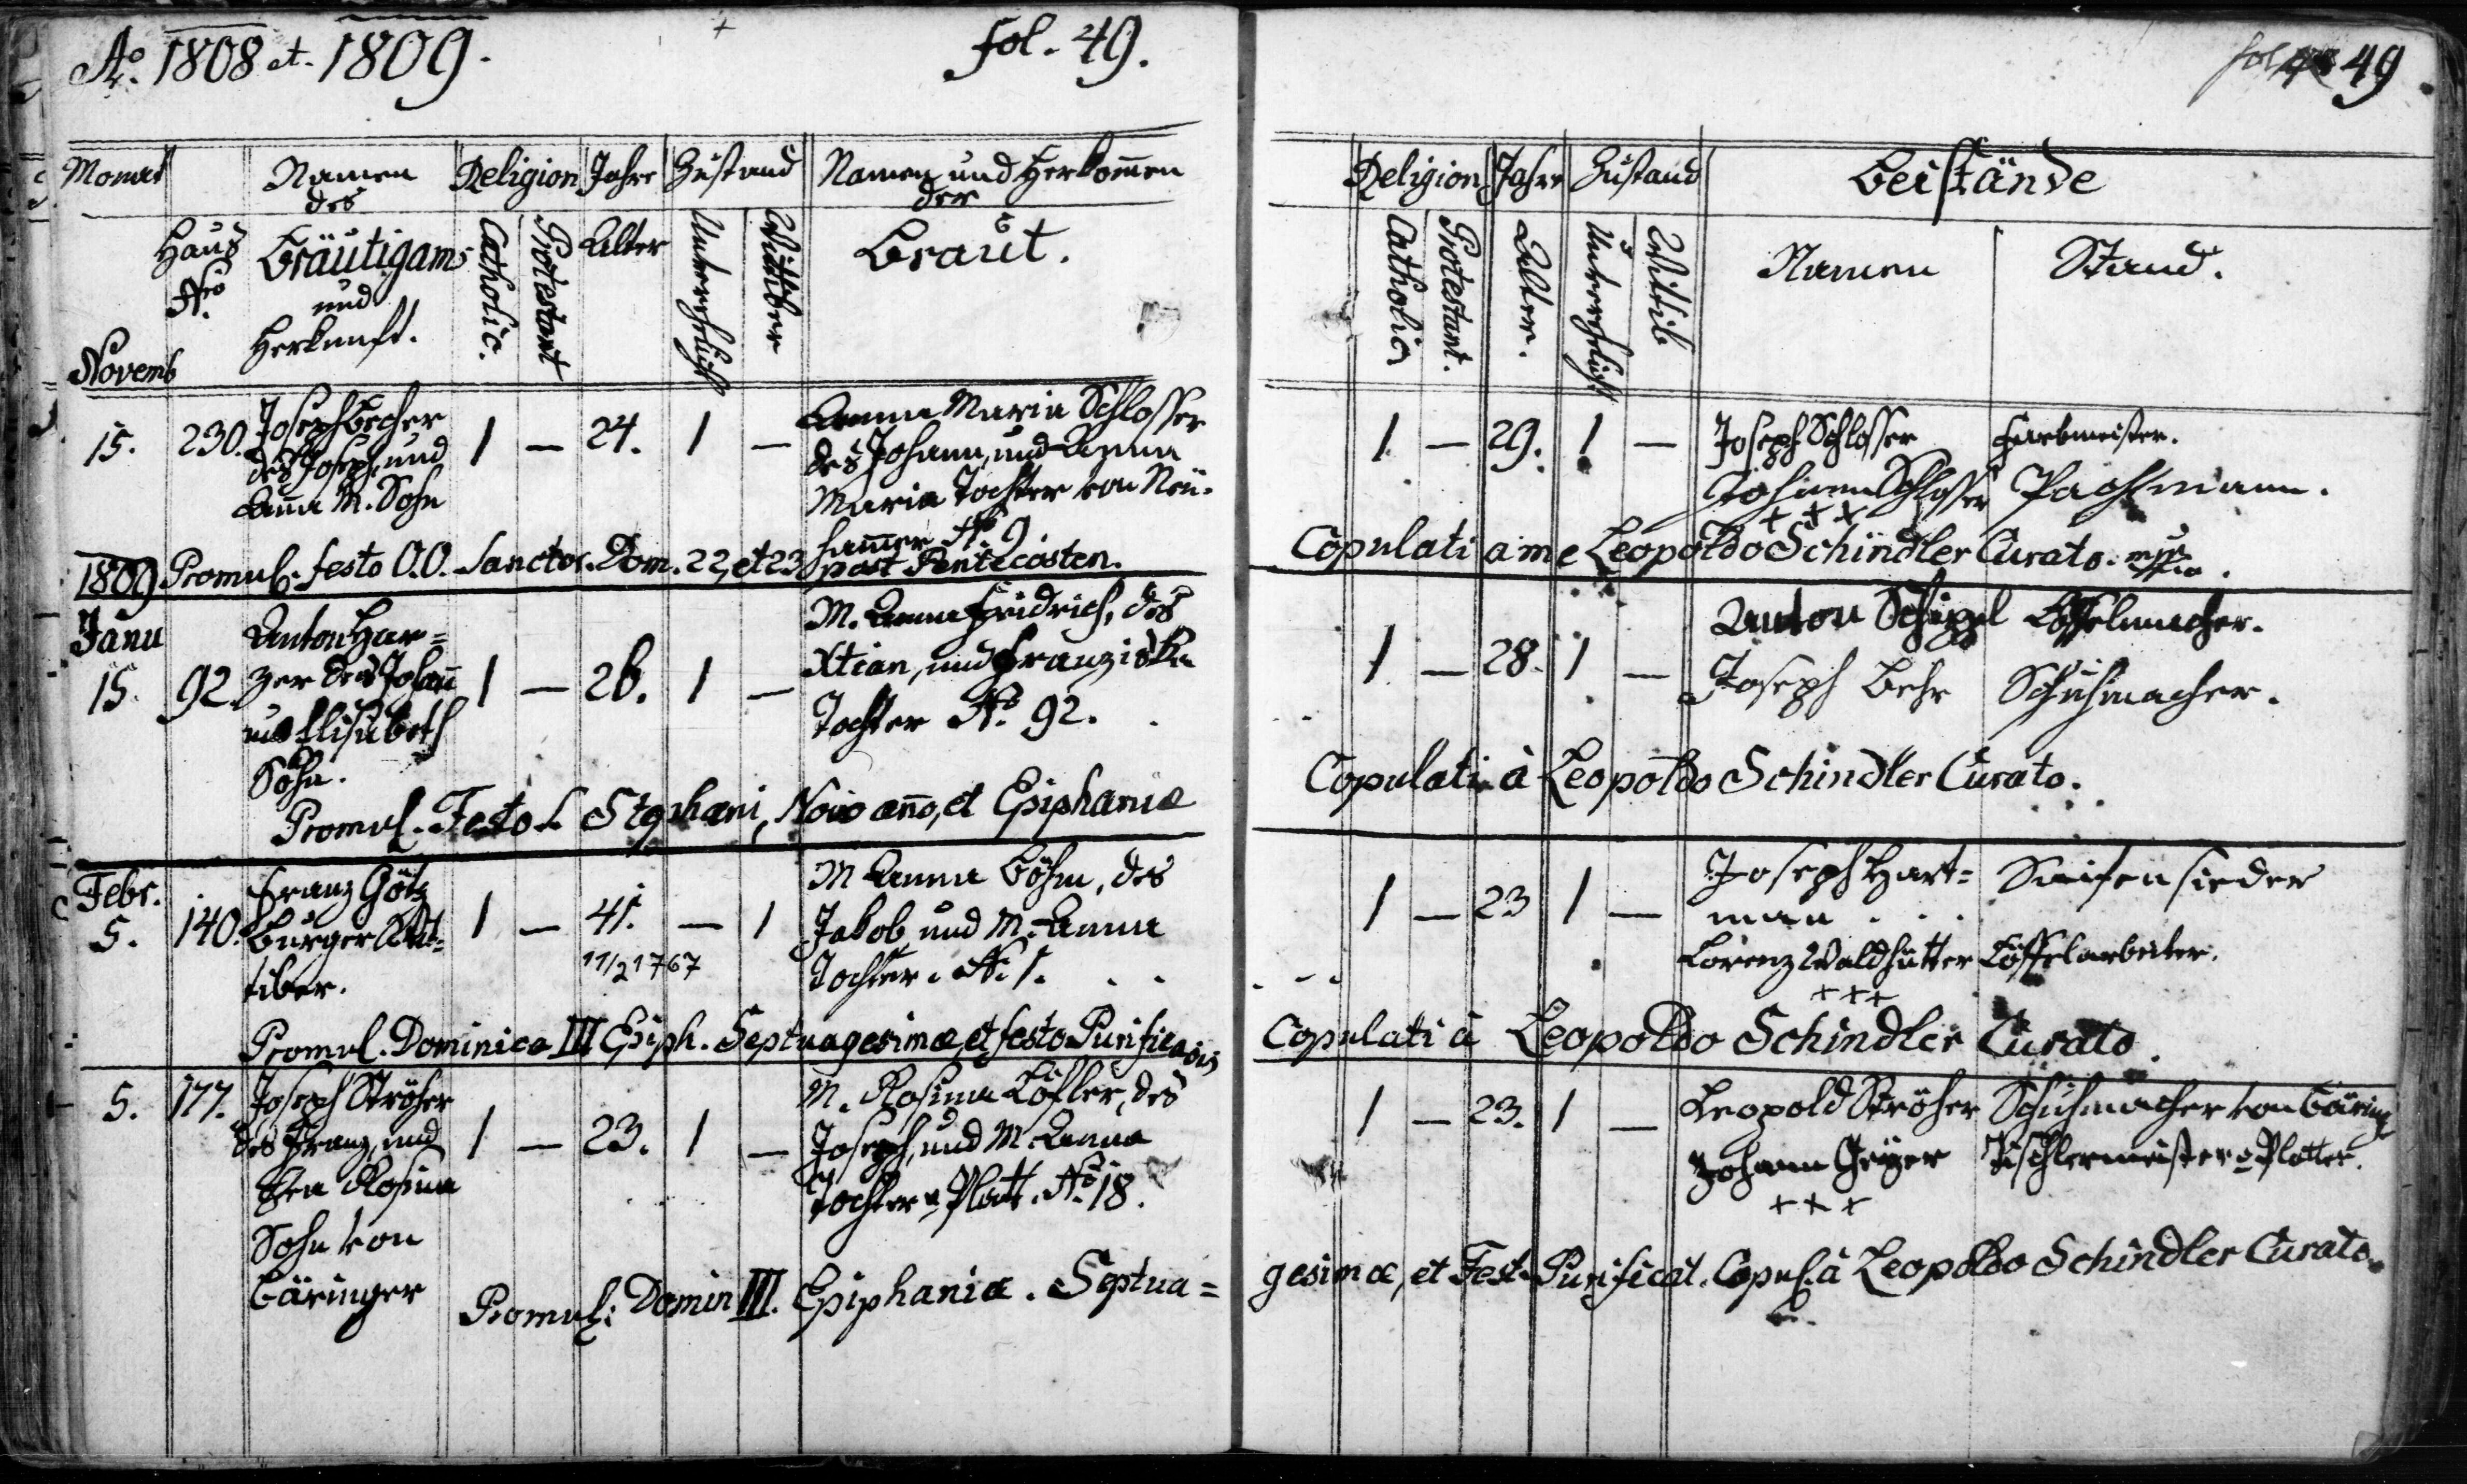 Aö. 1808 et. 1809.
fol. 49.
Monat
Namen des Bräutigams und Herkunft.
Haus Nro
Religion
Catholic.
Protestant
Jahre
Alter
Zustand
Unverehelicht
Wittiber
Namen und Herkom̄en
der
Braut.
Novemb
15. 230. Joseph Becher 1 — 24. 1 — Anna Maria Schlosser
des Joseph, und
Aña M. Sohn
des Johann, und Anna
Maria Tochter von Neü-
ham̄er No. 9
1809 Promul. festo O.O. Sanctor. Dom. 22, et 23 post Pentecosten.
Janu
15. 92. Anton Har=
zer des Johañ
und Elisabeth
Sohn.
1 — 26. 1 —
M. Anna Fridrich, des
Xtian, und Franziska
Tochter No. 92.
Promul. Festo S. Stephani, Novo año, et Epiphaniæ
Febr.
5. 140. Franz Götz
Burger Wit=
tiber.
1 — 41. — 1
11/2 1767
M Anna Böhm, des
Jakob und M. Anna
Tochter. No. 1.
Promul. Dominica III Epiph. Septuagesimæ, et festo Purificaois
5. 177. Joseph Ströher
des Franz, und
Rosina
Sohn von
Bäringer
1 — 23. 1 —
M. Rosina Löfler, des
Joseph, und M. Anna
Tochter v. Platt. No. 18.
Promul: Domin III. Epiphaniæ. Septua=
fol 49
Religion
Catholic
Protestant.
Jahre
Alter.
Zustand
Unverehelicht
Wittib
Beistände
Namen
Stand.
1 — 29. 1 — Joseph Schlosser
Johann Schlosser Pachtmann.
+ + x
Copulati a me Leopoldo Schindler Curato.
1 — 28. 1 — Anton Löffelmacher.
Joseph Behr Schuhmacher.
Copulati à Leopoldo Schindler Curato.
1 — 23 1 — Joseph Hart= Seifensieder
man
Lorenz Waldhütter Löffelarbeiter.
+++
Copulati à Leopoldo Schindler Curato.
1 — 23. 1 — Leopold Ströher Schuhmacher von Bäring
Johann Geÿer Tischlermeister v Platten.
+ + +
gesimæ, et Fest. Purificat. Copul. à Leopoldo Schindler Curato.